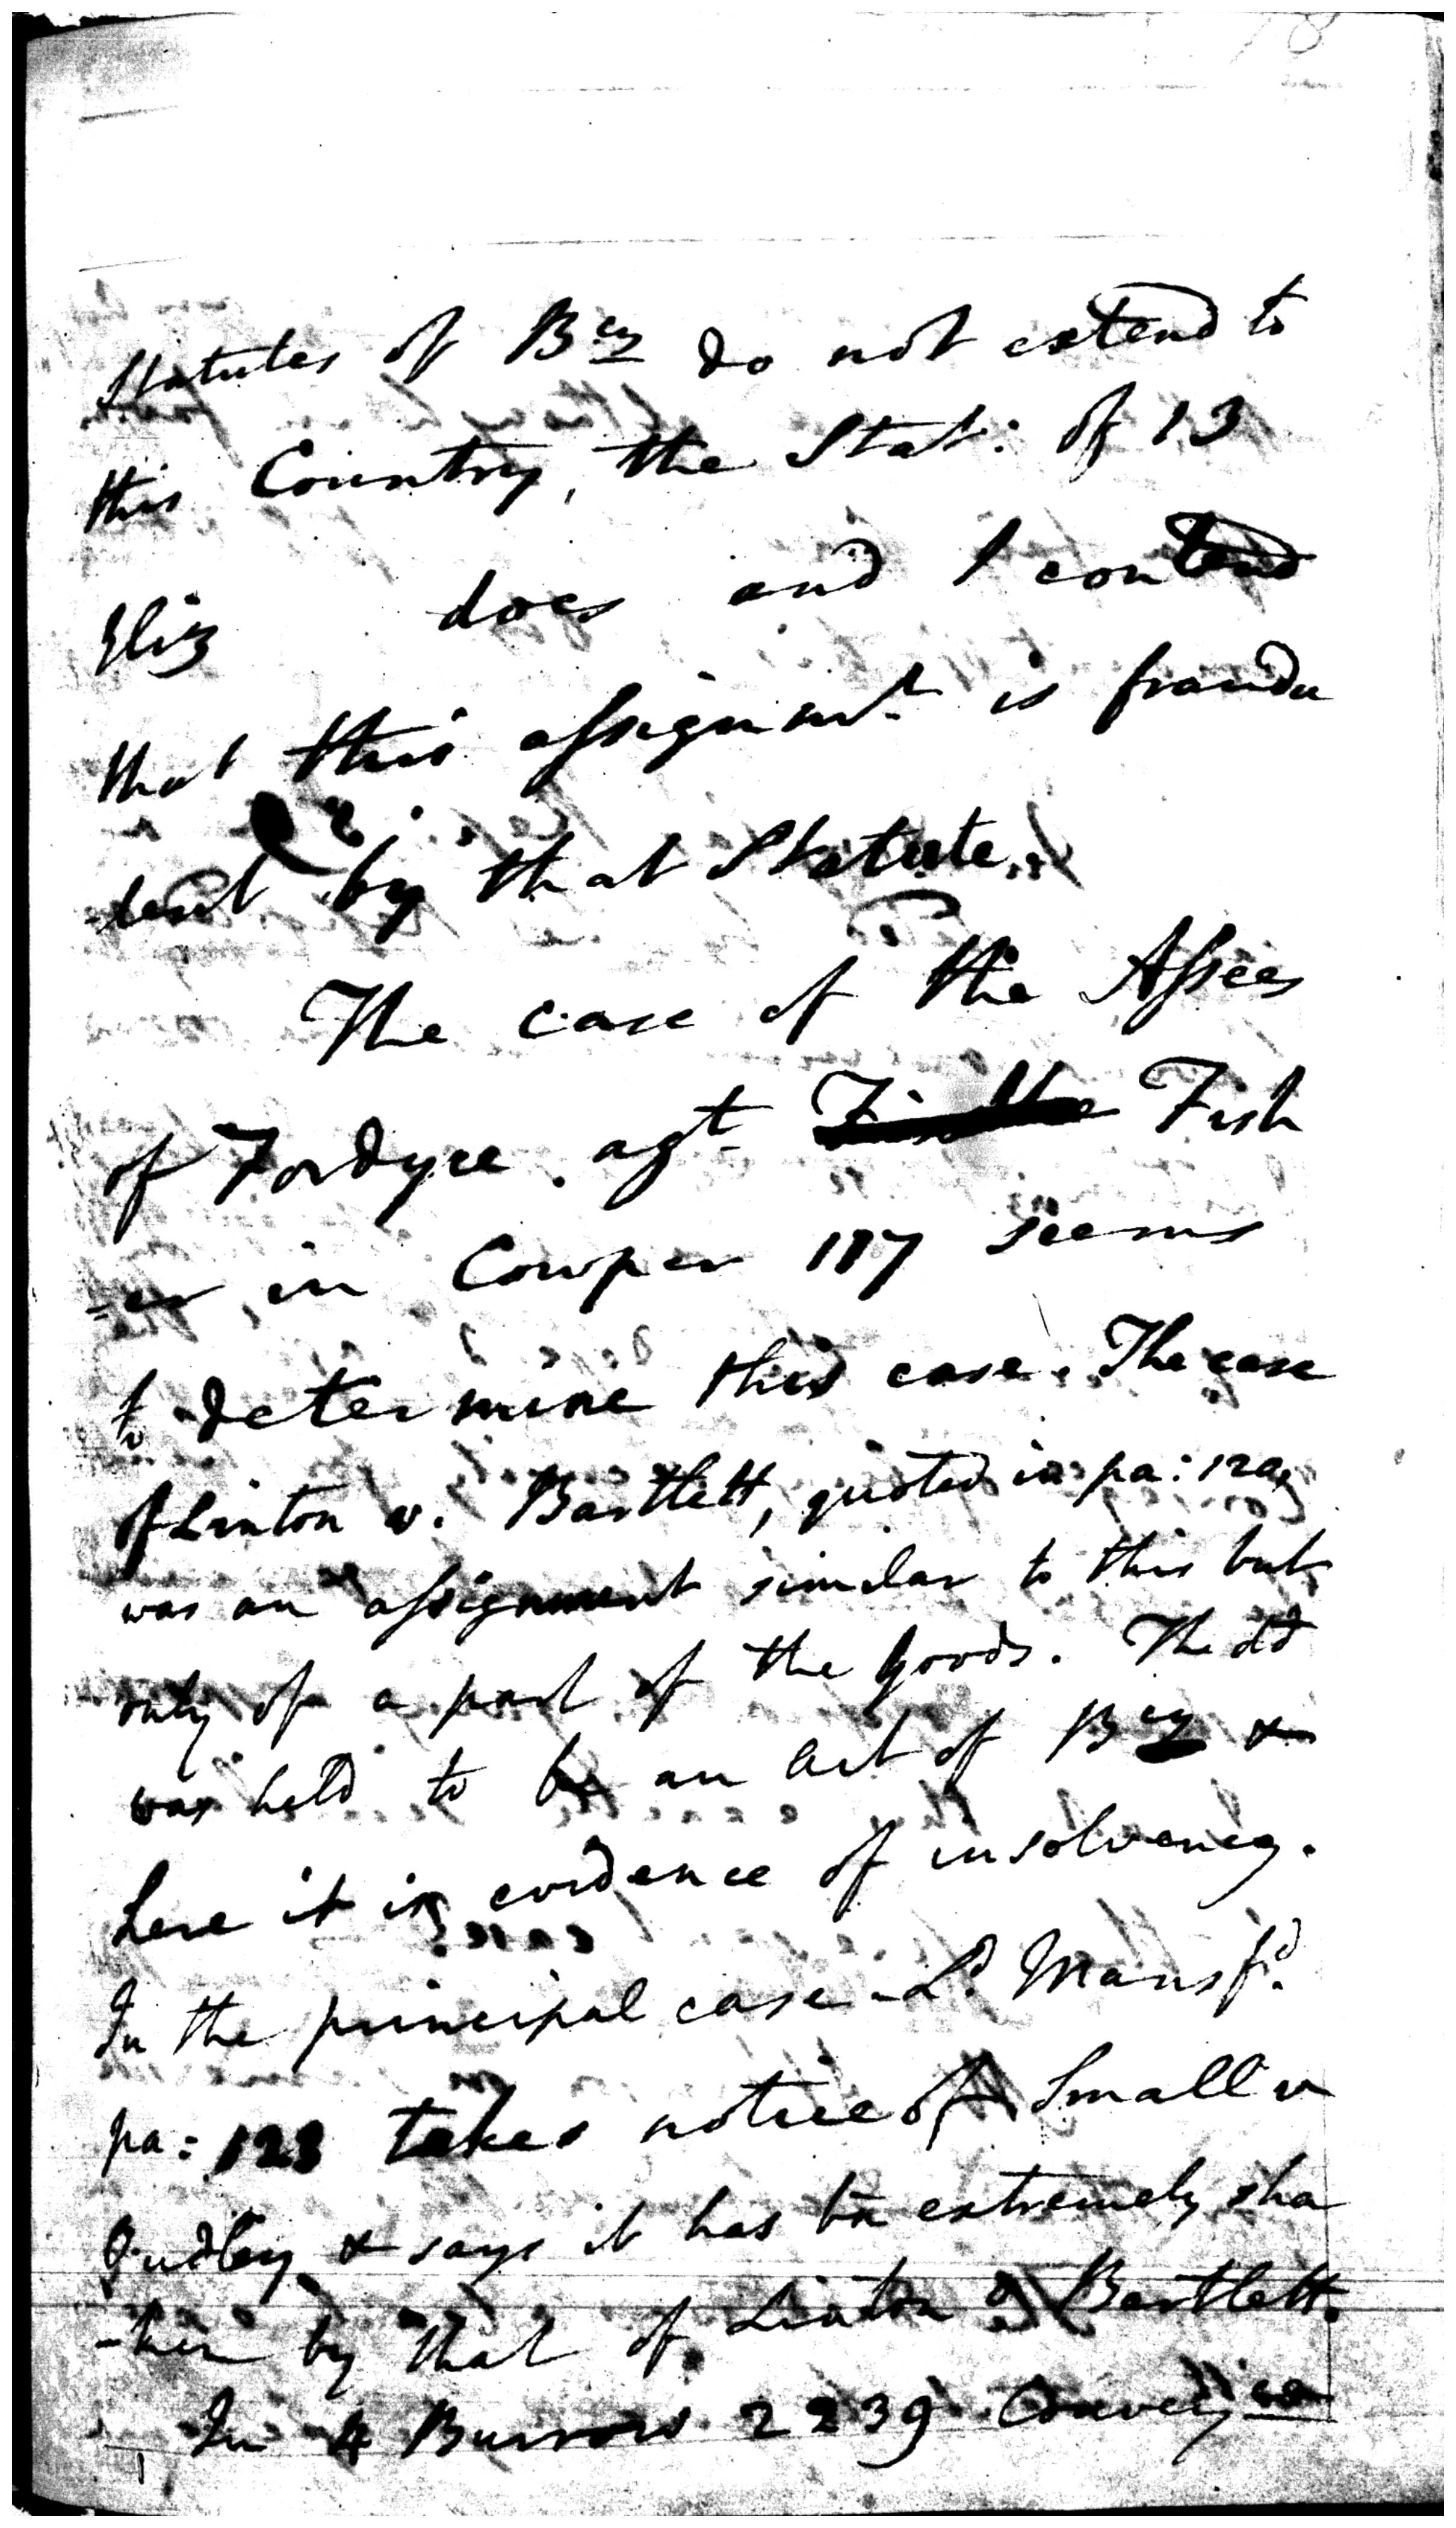 statutes of Bcy do not extend to
this Country, the Stat: of 13
Eliz does and I contend
that this assignmt is fraudu
-lent by that Statute.
The case of the Assees
of Fordyce agt Fish
-er in Cowper 117 seems
to determine this case. The case
of Linton v. Bartlett, quoted in pa: 120,
was an assignment similar to this but
only of a part of the goods. The dd
was held to be an act of Bcy &
here it is evidence of insolvency.
In the principal case Ld. Mansfd.
pa: 123 takes notice of Small v
Oudley & says it has bn extremely sha
-ken by that of Linton & Bartlett.
In 4 Burrow 2239